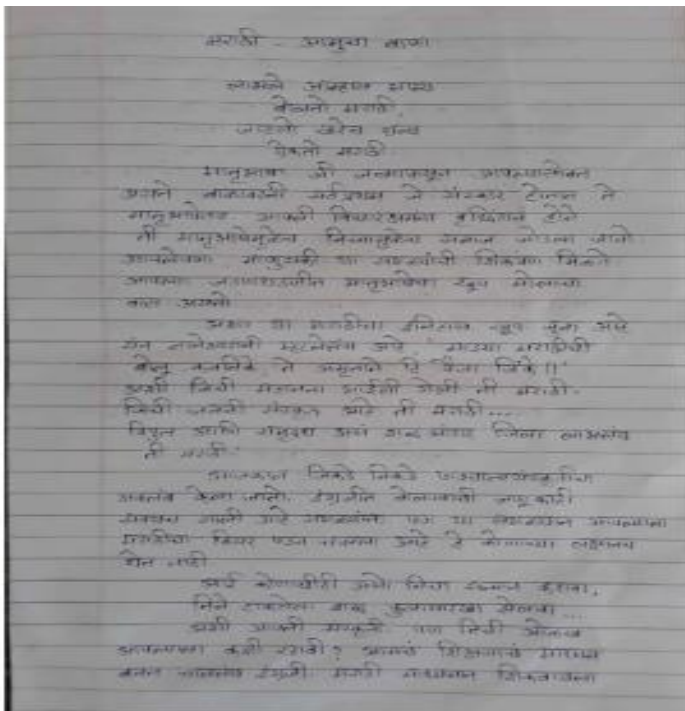 मराठी - आमुचा बाणा
लाभले आम्हास भाग्य
बोलतो मराठी,
जाहलो खरेच धन्य
ऐकतो मराठी
मातृभाषा जी जन्मापासून आपल्यासोबत
असते बाळावरती सर्वप्रथम जे संस्कार होतात ते
मातृभाषेतून आपली विचारक्षमता वृद्धिंगत होते
ती मातृभाषेमुळेच तिच्यामुळेच समाज जोडला जातो
आपलेपणा माणुसकी या सगळ्यांची शिकवण मिळते
आपल्या मातृभाषेचा खूप मोलाचा
वाटा असतो
अशा या मराठीचा इतिहास खूप जुना आहे
संत ज्ञानेश्वरांनी म्हटलेलंच आहे माझ्या मराठीची
बोलु कवतिके, ते अमृताते हि पैजा जिंके।।
अशी जिची महानता गाईली गेली ती मराठी.
जिची जननी संस्कृत आहे ती मराठी....
विपुल आणि समृद्ध असं शब्द भांडार जिला लाभलंय
ती मराठी.
आजकाल जिकडे तिकडे पाश्चात्यसंस्कृतीचा
अवलंब केला जातो. इंग्रजीत बोलण्याची जणू काही
सवयच झाली आहे सगळ्यांना पण या आपल्याला
मराठीचा विसर पडत चालला आहे हे कोणाच्या लक्षातच
येत नाही
आई कोणाचीही असो तिचा सन्मान करावा,
तिने टाकलेला शब्द फुलासारखा झेलावा...
अशी आपली संस्कृती पण तिची ओळख
आपल्याला कशी रहावी? आजचं शिक्षणाचं माध्यम
बनत चाललंय इंग्रजी मराठी माध्यमात शिकवायला